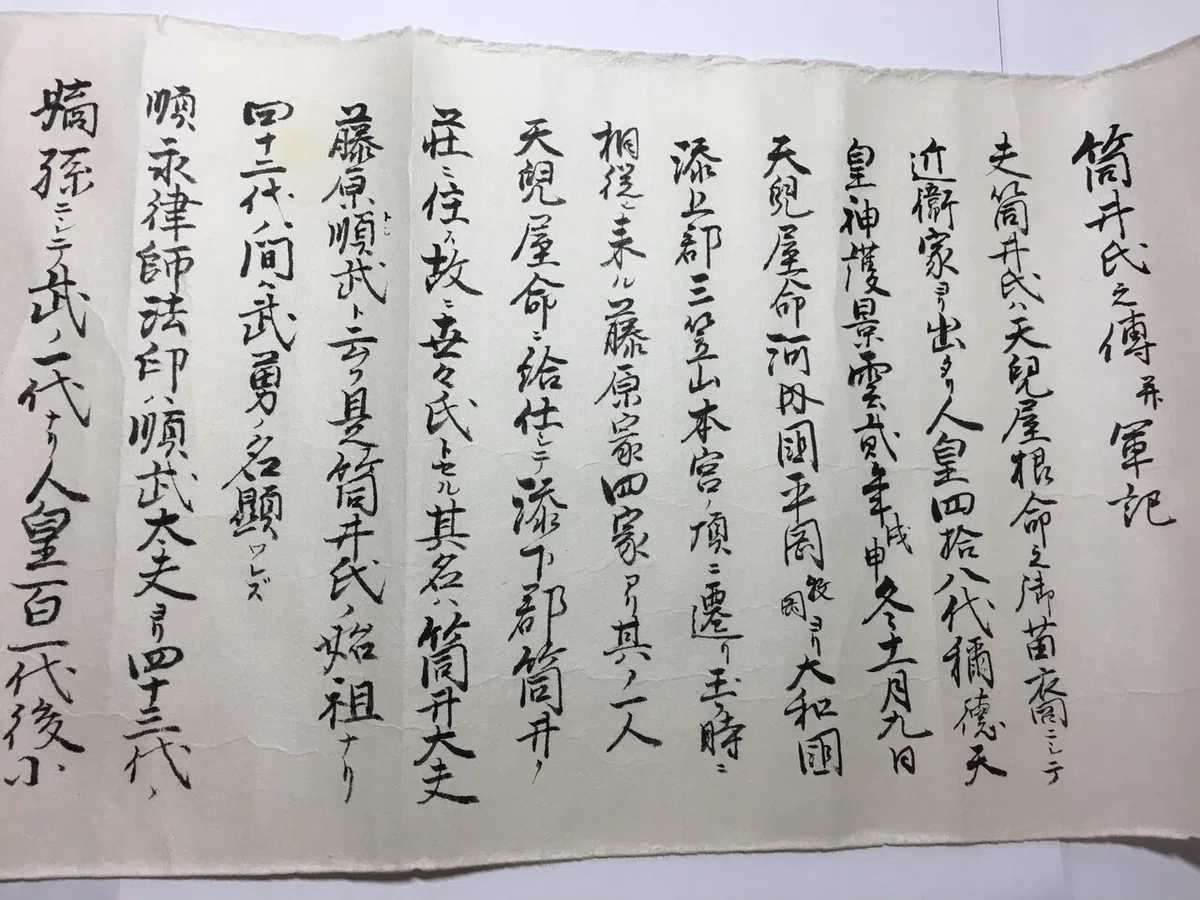 筒井氏之傳并軍記
夫筒井氏ハ天兒屋根命之御苗裔ニシテ
近衞家ヨリ出タリ人皇四拾八代稱德天
皇神護景雲貳年戊申冬十一月九日
天兒屋命河内國平岡枚岡ヨリ大和國
添上郡三笠山本宮ノ頂ニ遷リ玉フ時ニ
相從ヒ来ル藤原家四家アリ其ノ一人
天兒屋命ニ給仕シテ添下郡筒井ノ
莊ニ住ス故ニ世々氏トセル其名ハ筒井大夫
藤原順武ト云フ是筒井氏ノ始祖ナリ
四十二代ノ間ハ武勇ノ名顯ワレズ
順永律師法印ハ順武太夫ヨリ四十三代ノ
嫡孫ニシテ武ノ一代ナリ人皇百一代後小